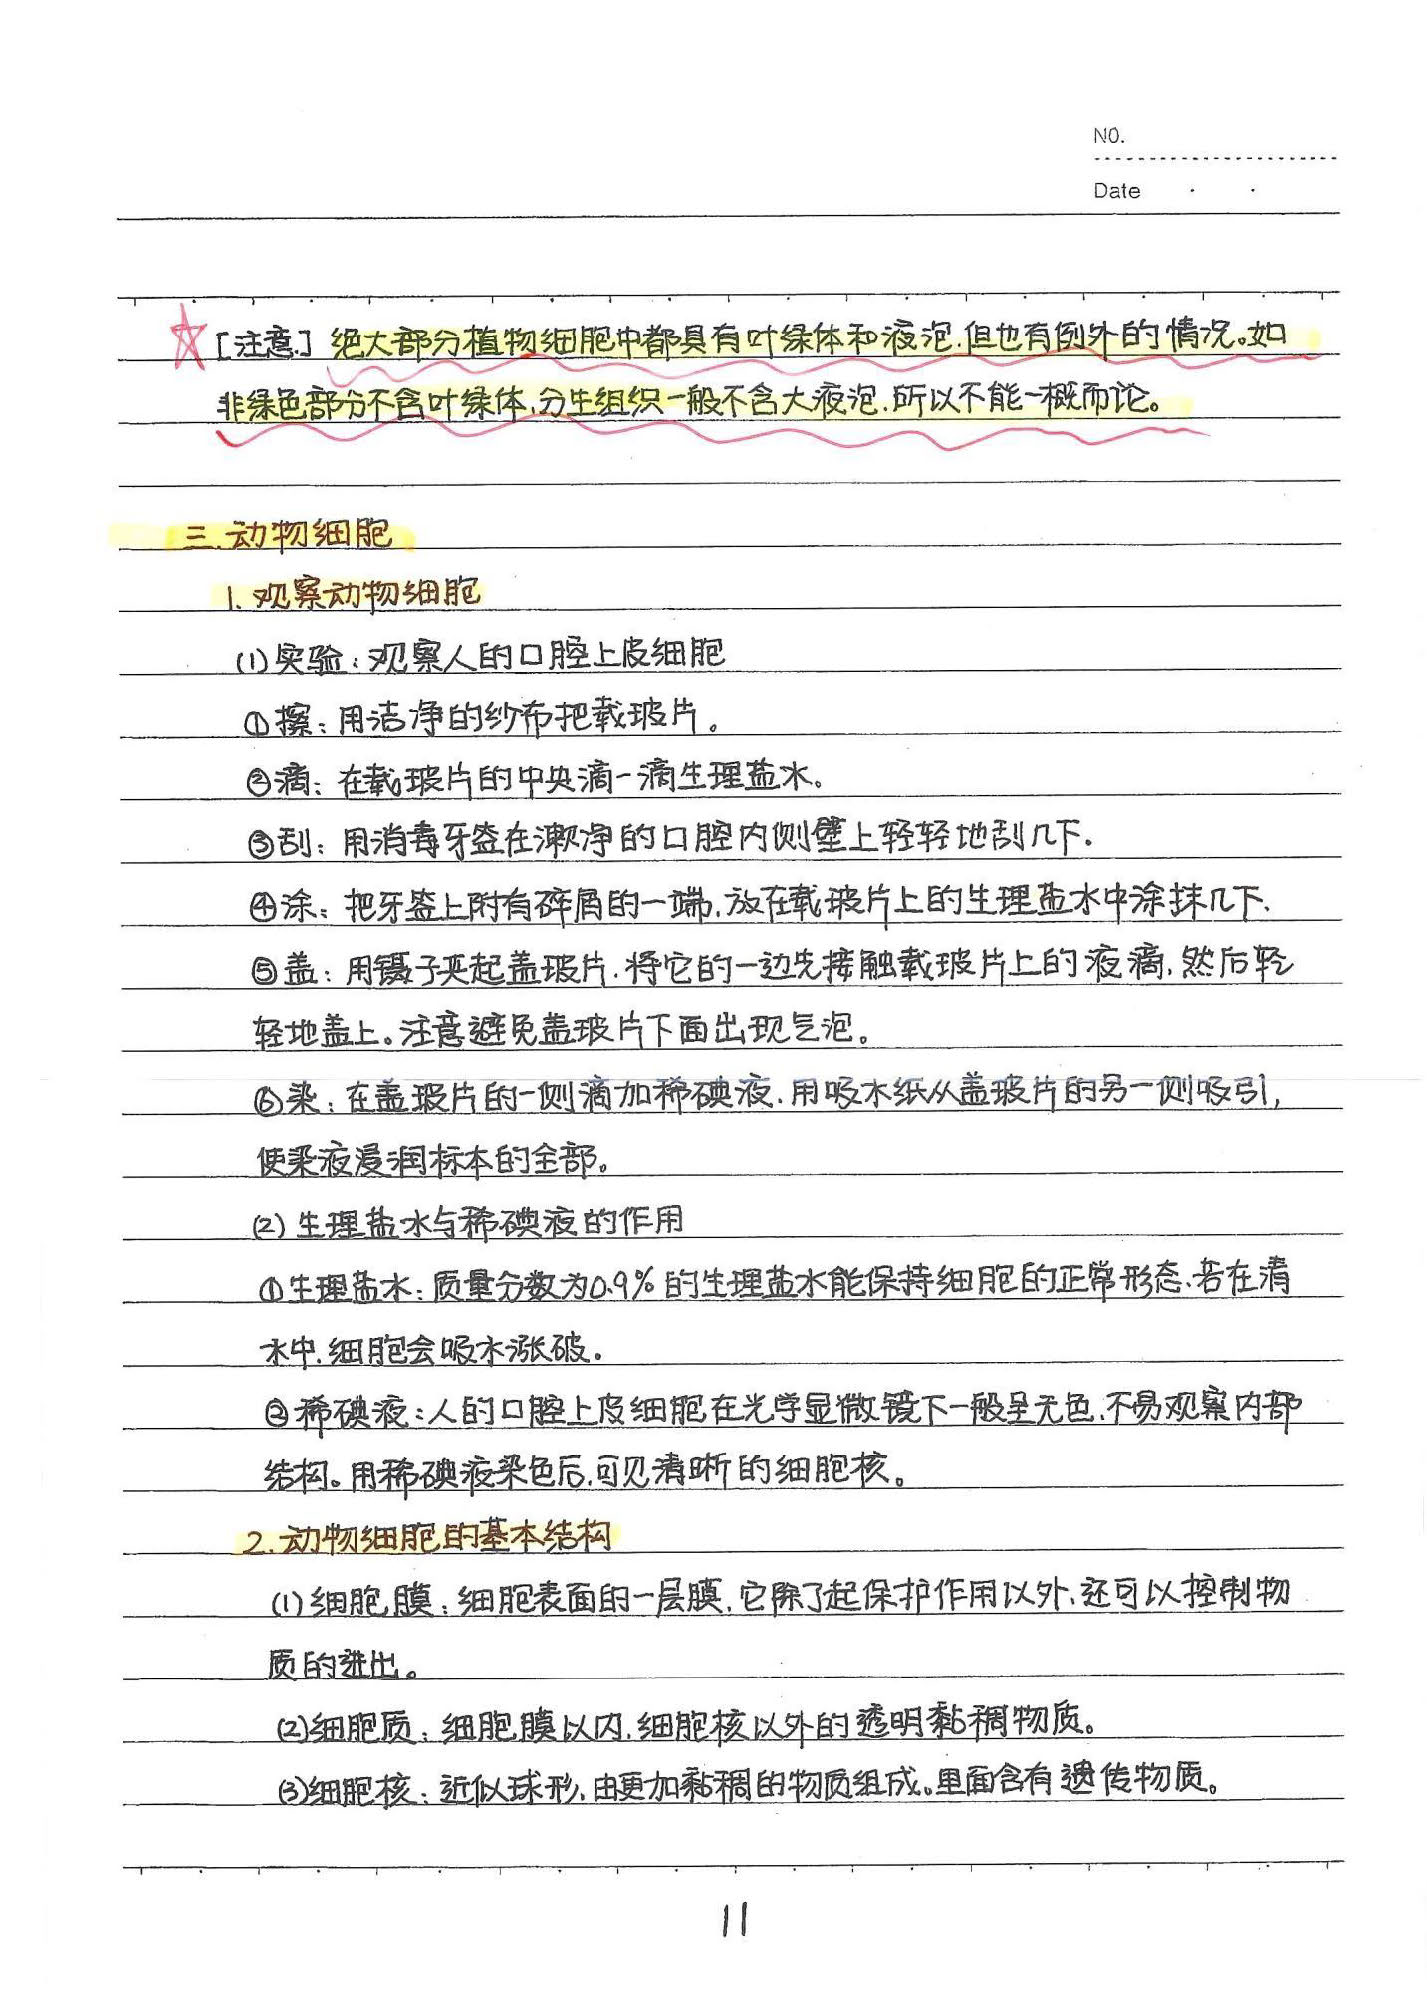 NO.
Date
[注意] 绝大部分植物细胞中都具有叶绿体和液泡,但也有例外的情况。如
非绿色部分不含叶绿体,分生组织一般不含大液泡,所以不能一概而论。
三.动物细胞
1.观察动物细胞
(1)实验:观察人的口腔上皮细胞
①擦:用洁净的纱布把载玻片。
②滴:在载玻片的中央滴一滴生理盐水。
③刮:用消毒牙签在漱净的口腔内侧壁上轻轻地刮几下.
④涂:把牙签上附有碎屑的一端,放在载玻片上的生理盐水中涂抹几下.
⑤盖:用镊子夹起盖玻片,将它的一边先接触载玻片上的液滴,然后轻
轻地盖上。注意避免盖玻片下面出现气泡。
⑥染:在盖玻片的一侧滴加稀碘液,用吸水纸从盖玻片的另一侧吸引,
使染液浸润标本的全部。
(2)生理盐水与稀碘液的作用
①生理盐水:质量分数为0.9%的生理盐水能保持细胞的正常形态,若在清
水中,细胞会吸水涨破.
②稀碘液:人的口腔上皮细胞在光学显微镜下一般呈无色,不易观察内部
结构。用稀碘液染色后,可见清晰的细胞核。
2.动物细胞的基本结构
(1)细胞膜:细胞表面的一层膜,它除了起保护作用以外,还可以控制物
质的进出。
(2)细胞质:细胞膜以内,细胞核以外的透明黏稠物质。
(3)细胞核:近似球形,由更加黏稠的物质组成。里面含有遗传物质。
11